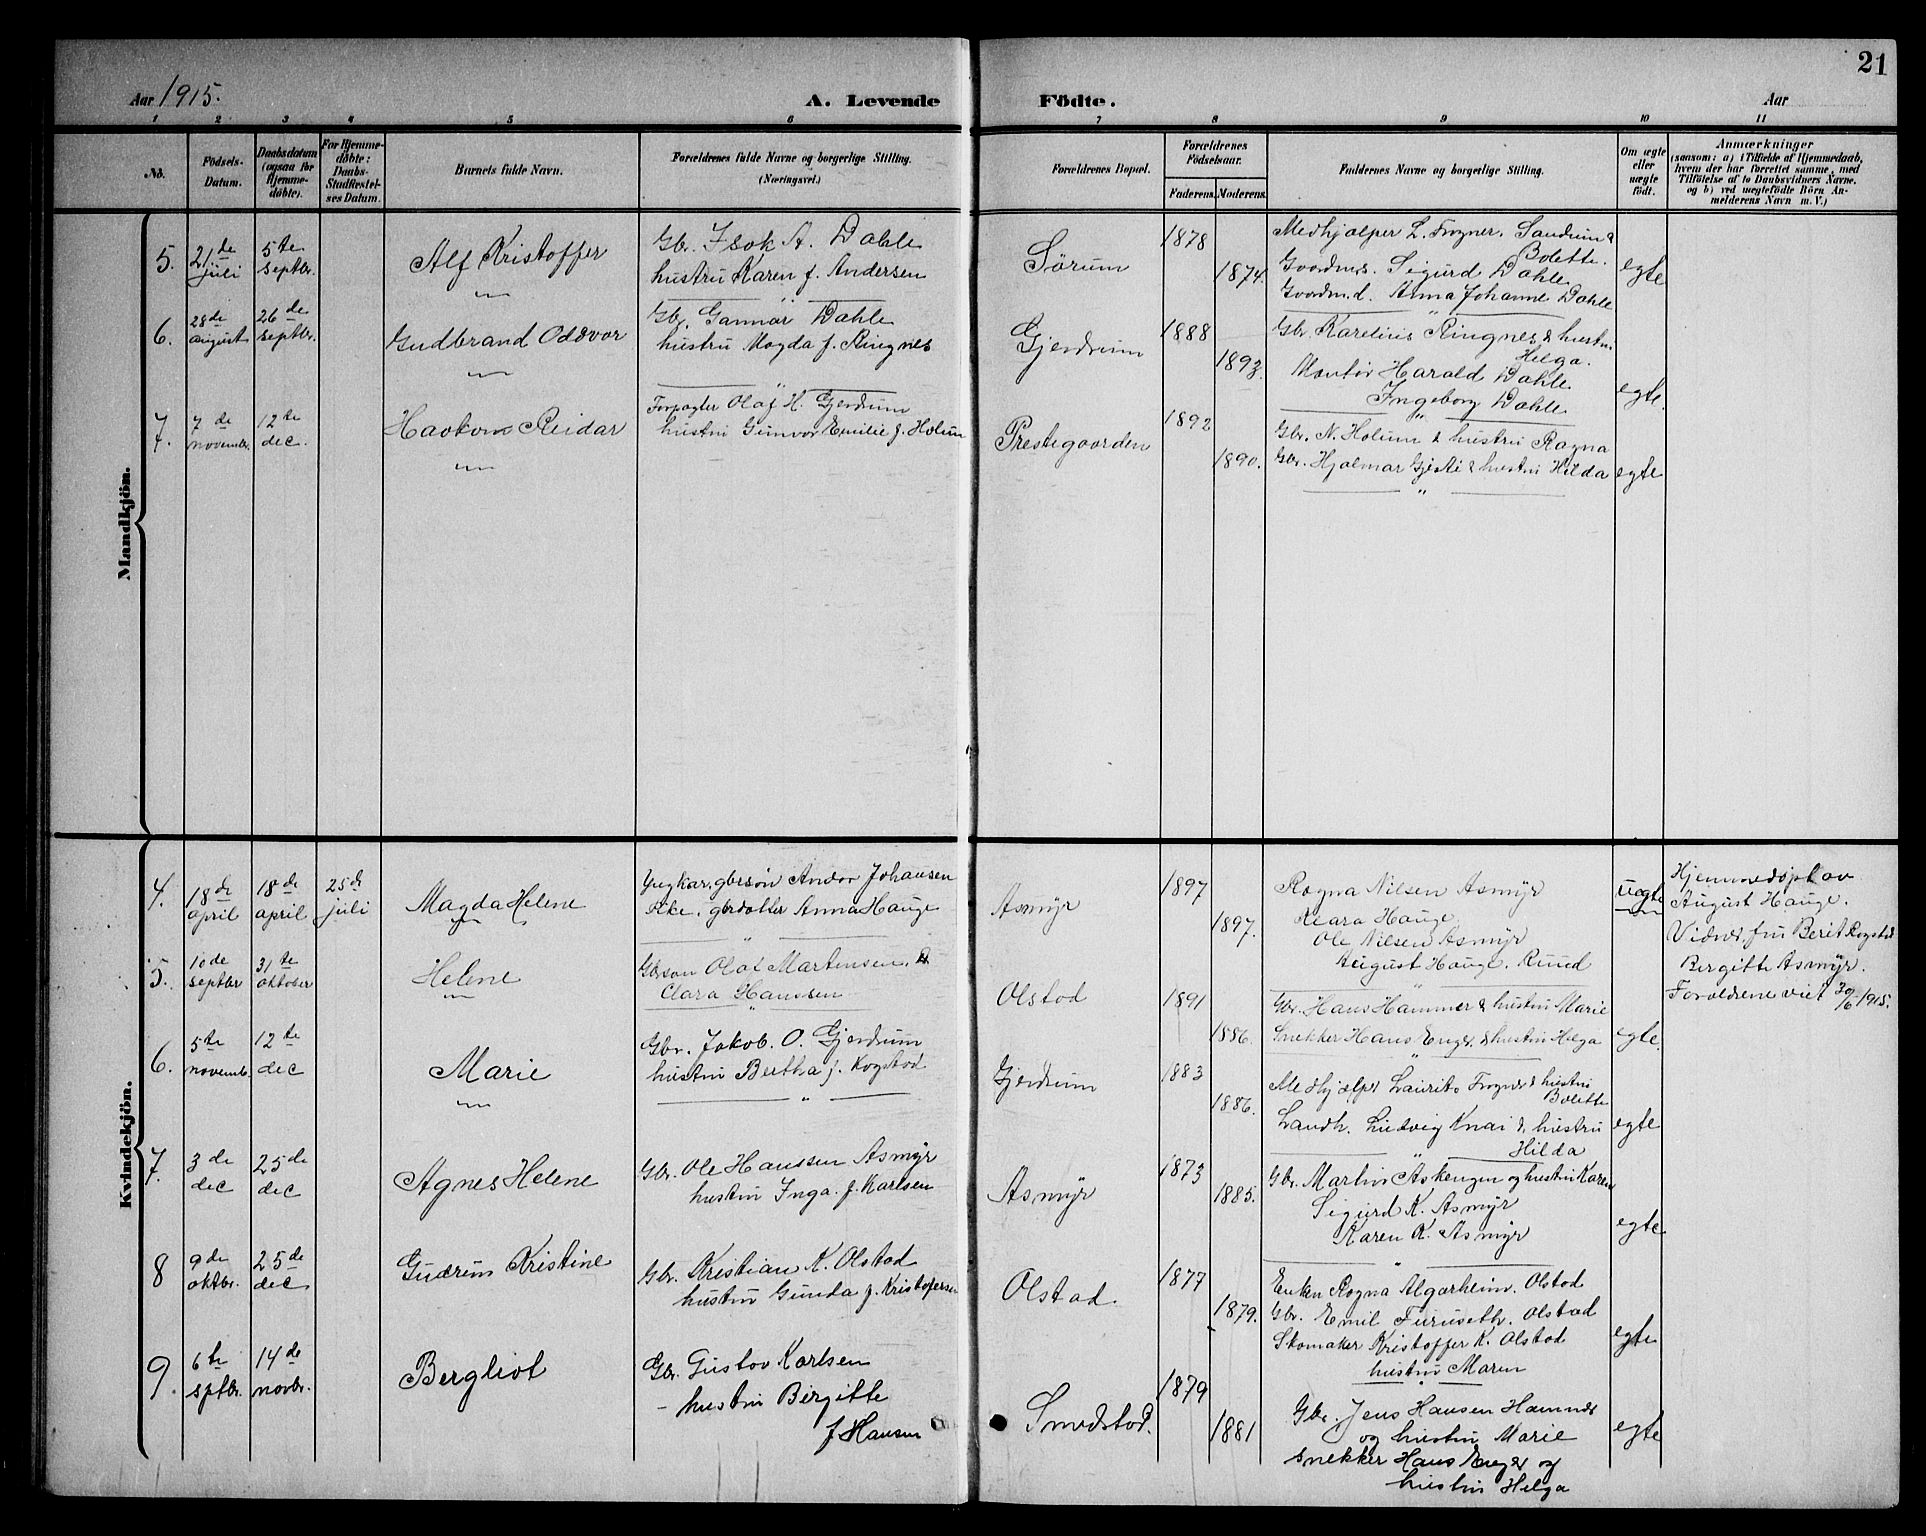 21
Aar 1915.
A. Levende
Födte.
Aar
1 2 3 4 5 6 7 8 9 10 11
No.
Födsels-
Datum.
Daabsdatum
(ogsaa for
Hjemme-
döbte).
For Hjemme-
döbte:
Daabs-
Stadfæstel-
ses Datum.
Barnets fulde Navn.
Forældrenes fulde Navne og borgerlige Stilling.
(Næringsvei.)
Forældrenes Bopæl.
Forældrenes
Födselsaar.
Faderens.
Moderens.
Faddernes Navne og borgerlige Stilling.
Om ægte
eller
uægte
födt.
Anmærkninger
(saasom: a) i Tilfælde af Hjemmedaab,
hvem der har forrettet samme, med
Tilföielse af to Daabsvidners Navne,
og b) ved uægtefödte Börn An-
melderens Navn m. V.)
Mandkjön.
5.
21de
juli
5te
septbr.
Alf Kristoffer
Gbr. Isak A. Dahle
hustru Karen f. Andersen
Sörum
1878
1874.
Medhjælper L. Frogner, Sandum &
Bolette.
Gaardmrs. Sigurd Dahle
Gaardm.d. Anna Johanne Dahle
egte
6.
28de
august
26de
septbr.
Gudbrand Oddvar
Gbr. Gunnar Dahle
hustru Magda f. Ringnes
Gjerdrum
1888
1893.
Gbr. Karelius Ringnes & hustru
Helga.
Montör Harald Dahle
Ingeborg Dahle
egte.
7.
7de
novembr.
12te
dec.
Haakon Reidar
Forpagter Olaf H. Gjerdrum
hustru Gunvor Emilie f. Holum
Prestegaarden
1892
1890.
Gbr. N. Holum & hustru Ragna
Gbr. Hjalmar Gjesti & hustru Hilda
egte
Kvindekjön.
4.
18de
april
18de
april
25de
juli
Magda Helene
Ungkar, gbrsön Andor Johansen
Pike, gbrdatter Anna Hauge
Asmyr
1897
1897.
Ragna Nilsen Asmyr
Klara Hauge
Ole Nilsen Asmyr
August Hauge. Ruud
uegte
Hjemmedöpt av
August Hauge.
Vidner, fru Berit Rogstad
Bergitte Asmyr.
Foreldrene viet 30/6 1915.
5.
10de
septbr
31te
oktober
Helene
Gbrsön Olaf Martensen.
Clara Hanssen
Olstad
1891
1886.
Gbr. Hans Hammer & hustru Marie
Snekker Hans Enger & hustru Helga
egte.
6.
5te
novemb.
12te
dec
Marie
Gbr. Jakob. O. Gjerdrum
hustru Bertha f. Kogstad
Gjerdrum
1883
1886.
Medhjælper Laurits Frogner & hustru
Bolette
Landh. Ludvig Knai & hustru
Hilda
egte
7.
3de
dec
25de
dec
Agnes Helene
Gbr. Ole Hanssen Asmyr
hustru Inga. f. Karlsen
Asmyr
1873
1885.
Gbr. Martin Askengen og hustru Karen
Sigurd K. Asmyr
Karen K. Asmyr
egte
8
9de
oktbr.
25de
dec
Gudrun Kristine
Gbr. Kristian K. Olstad
hustru Gunda f. Kristofersen
Olstad.
1877
1879.
Enken Ragna Algarheim. Olstad
Gbr. Emil Furuseth. Olstad
Skomaker Kristoffer K. Olstad
hustru Maren
egte
9.
6te
sptbr.
14de
novbr.
Bergliot
Gbr. Gustav Karlsen
- hustru Birgitte
f. Hansen
Smedstad.
1879
1881
Gbr. Jens Hansen Hammer
og hustru Marie
snekker Hans Enger og
hustru Helga
egte